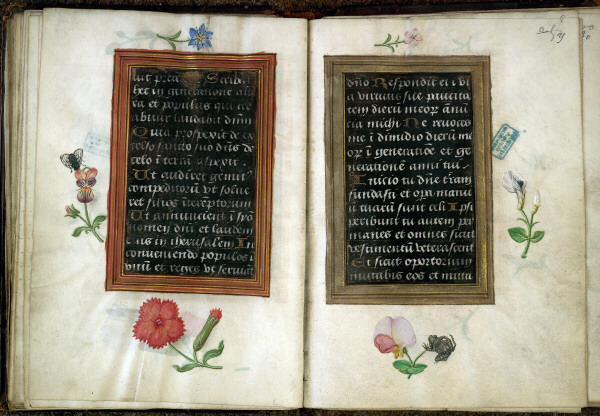 Scribā
hec in generatione alt
ra et populus qui cre
abitur laudabit dnm̄
Quia prospexit de ex
celso sancto suo dn̄s de
celo ī terrā aspexit.
Ut audiret gemit⁹
compeditorū vt solue
ret filios īteremptorum
Ut annuncient ī syō
nomen dn̄i et laudem
eius in iherusalem In
conueniendo populos ī
vnum et reges vt seruiāt
dño Respondit ei ī vi
a virtutis sue paucita
tem dierū meor anū
cia michi Ne reuoces
me ī dimidio dierū me
or ī generatione et ge
neratione anni tui.
Inicio tu dn̄e terrām
fundasti et opa manuū
tuarū sunt celi Ipsi
peribunt tu autem per
manes et omnes sicut
vestimentū veterascent
Et sicut opertorium
mutabis eos et muta